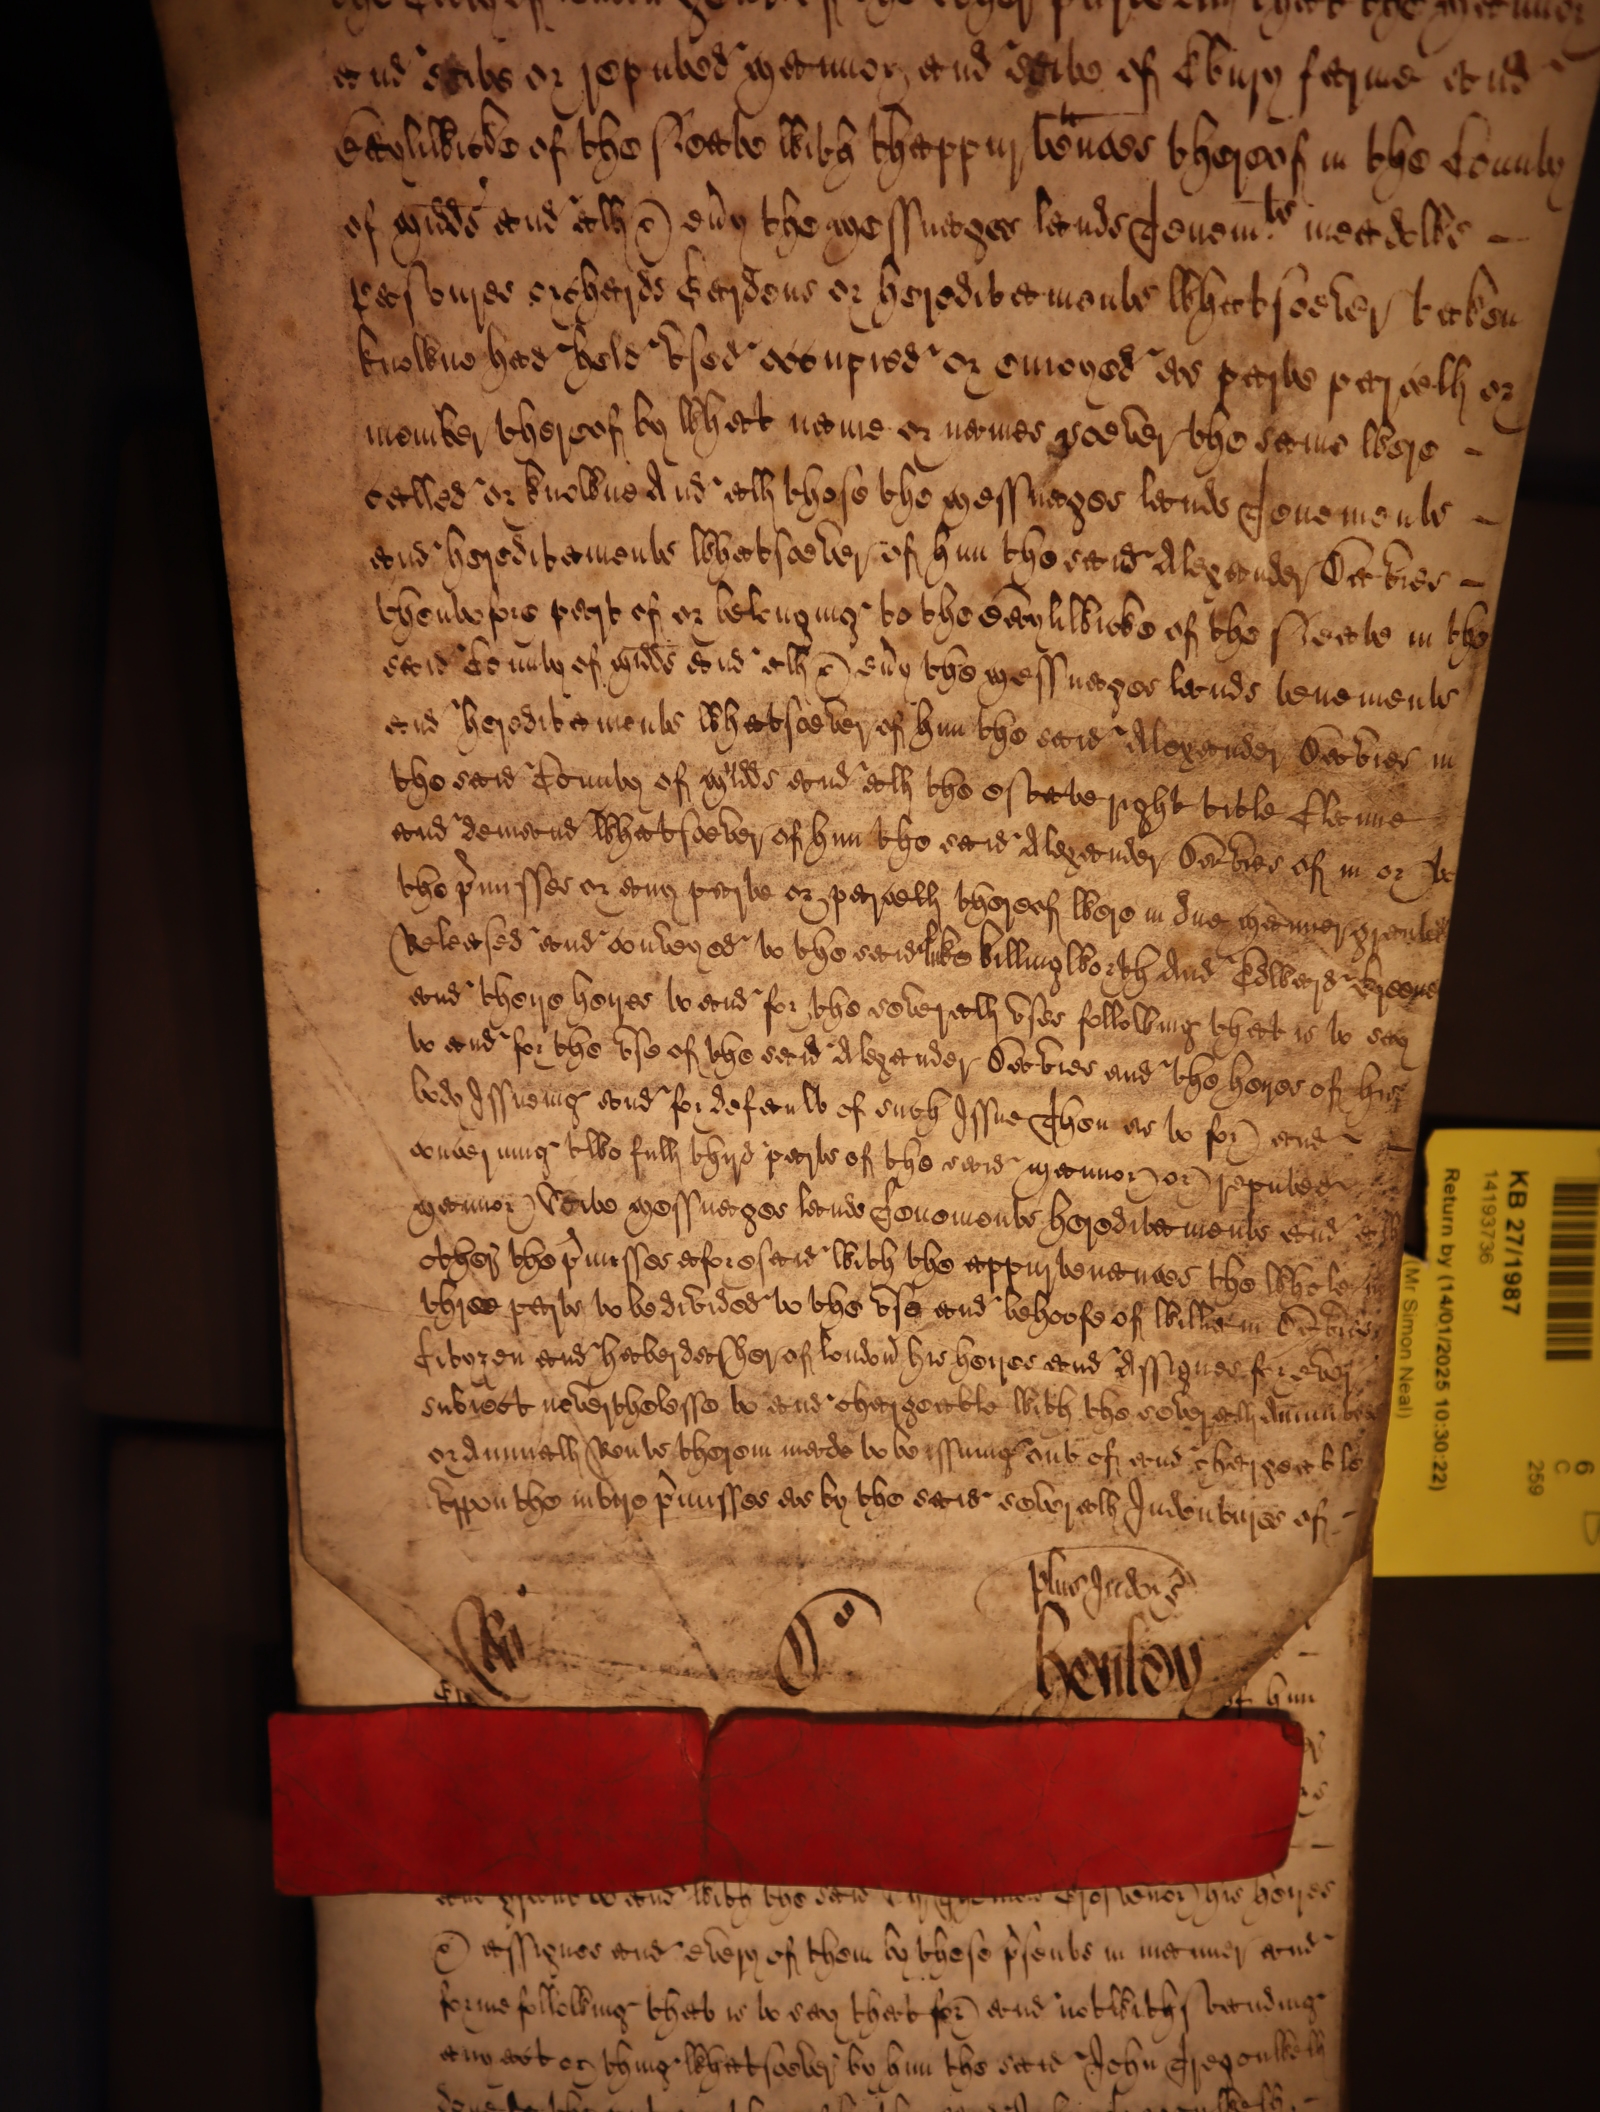 and scite or reputed mannor and scite of Ebury farme and
Baylliwicke of the Neate with thappurtenn'ces thereof in the County
of Midds and all & eu'y the messuages lands Tenem.ts meadowes
pastures orchards Gardens or hereditaments whatsoever taken
knowne had held vsed occupied or enioyed as parte parcell or
member thereof by what name or names soever the same were
called or knowne And all those the messuages lands Tenements
and hereditaments whatsoever of him the said Alexander Davies
thentofore part of or belonging to the Baylliwicke of the Neate in the
said County of Midds and all & eu'y the messuages lands tenements
and hereditaments whatsoever of him the said Alexander Davies in
the said County of Midds and all the estate right title Clame
and demand whatsoever of him the said Alexander Davies of in or to
the p'misses or any parte or parcell thereof were in due manner granted
Released and conveyed to the said Luke Killingworth And Edward Greene
and theire heires to and for the severall vses following that is to say
to and for the vse of the said Alexander Davies and the heires of his
body Issueing and for default of such Issue Then as to for and
concerning two full third parts of the said mannor or reputed
mannor Scite messuages lands Tenements hereditaments and all
other the p'misses aforesaid with the appurtenances the whole in
three parts to be divided to the vse and behoofe of William Davies
Citizen and haberdasher of London his heires and Assignes for ever
subiect neverthelesse to and chargeable with the severall Annuities
or Annuall Rents therein made to be issuing out of and chargeable
vppon the intire p'misses as by the said severall Indentures of
plus Indors
Ro
Henley
of him
and grant to and with the said his heires
& assignes and every of them by these p'sents in manner and
forme following that is to say that for and notwithstanding
any act or thing whatsoever by him the said John Tregonwell
KB 27/1987
14193736
Return by (14/01/2025 10:30:22)
(Mr Simon Neal)
6
C
259
D